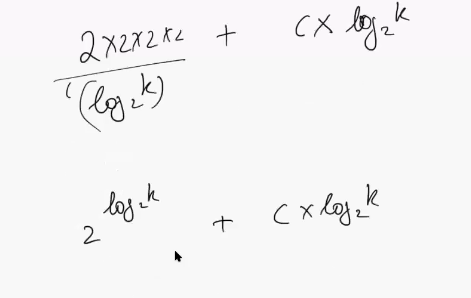 2×2×2×2 + C × log₂k
(log₂k)
2^log₂k + C × log₂k